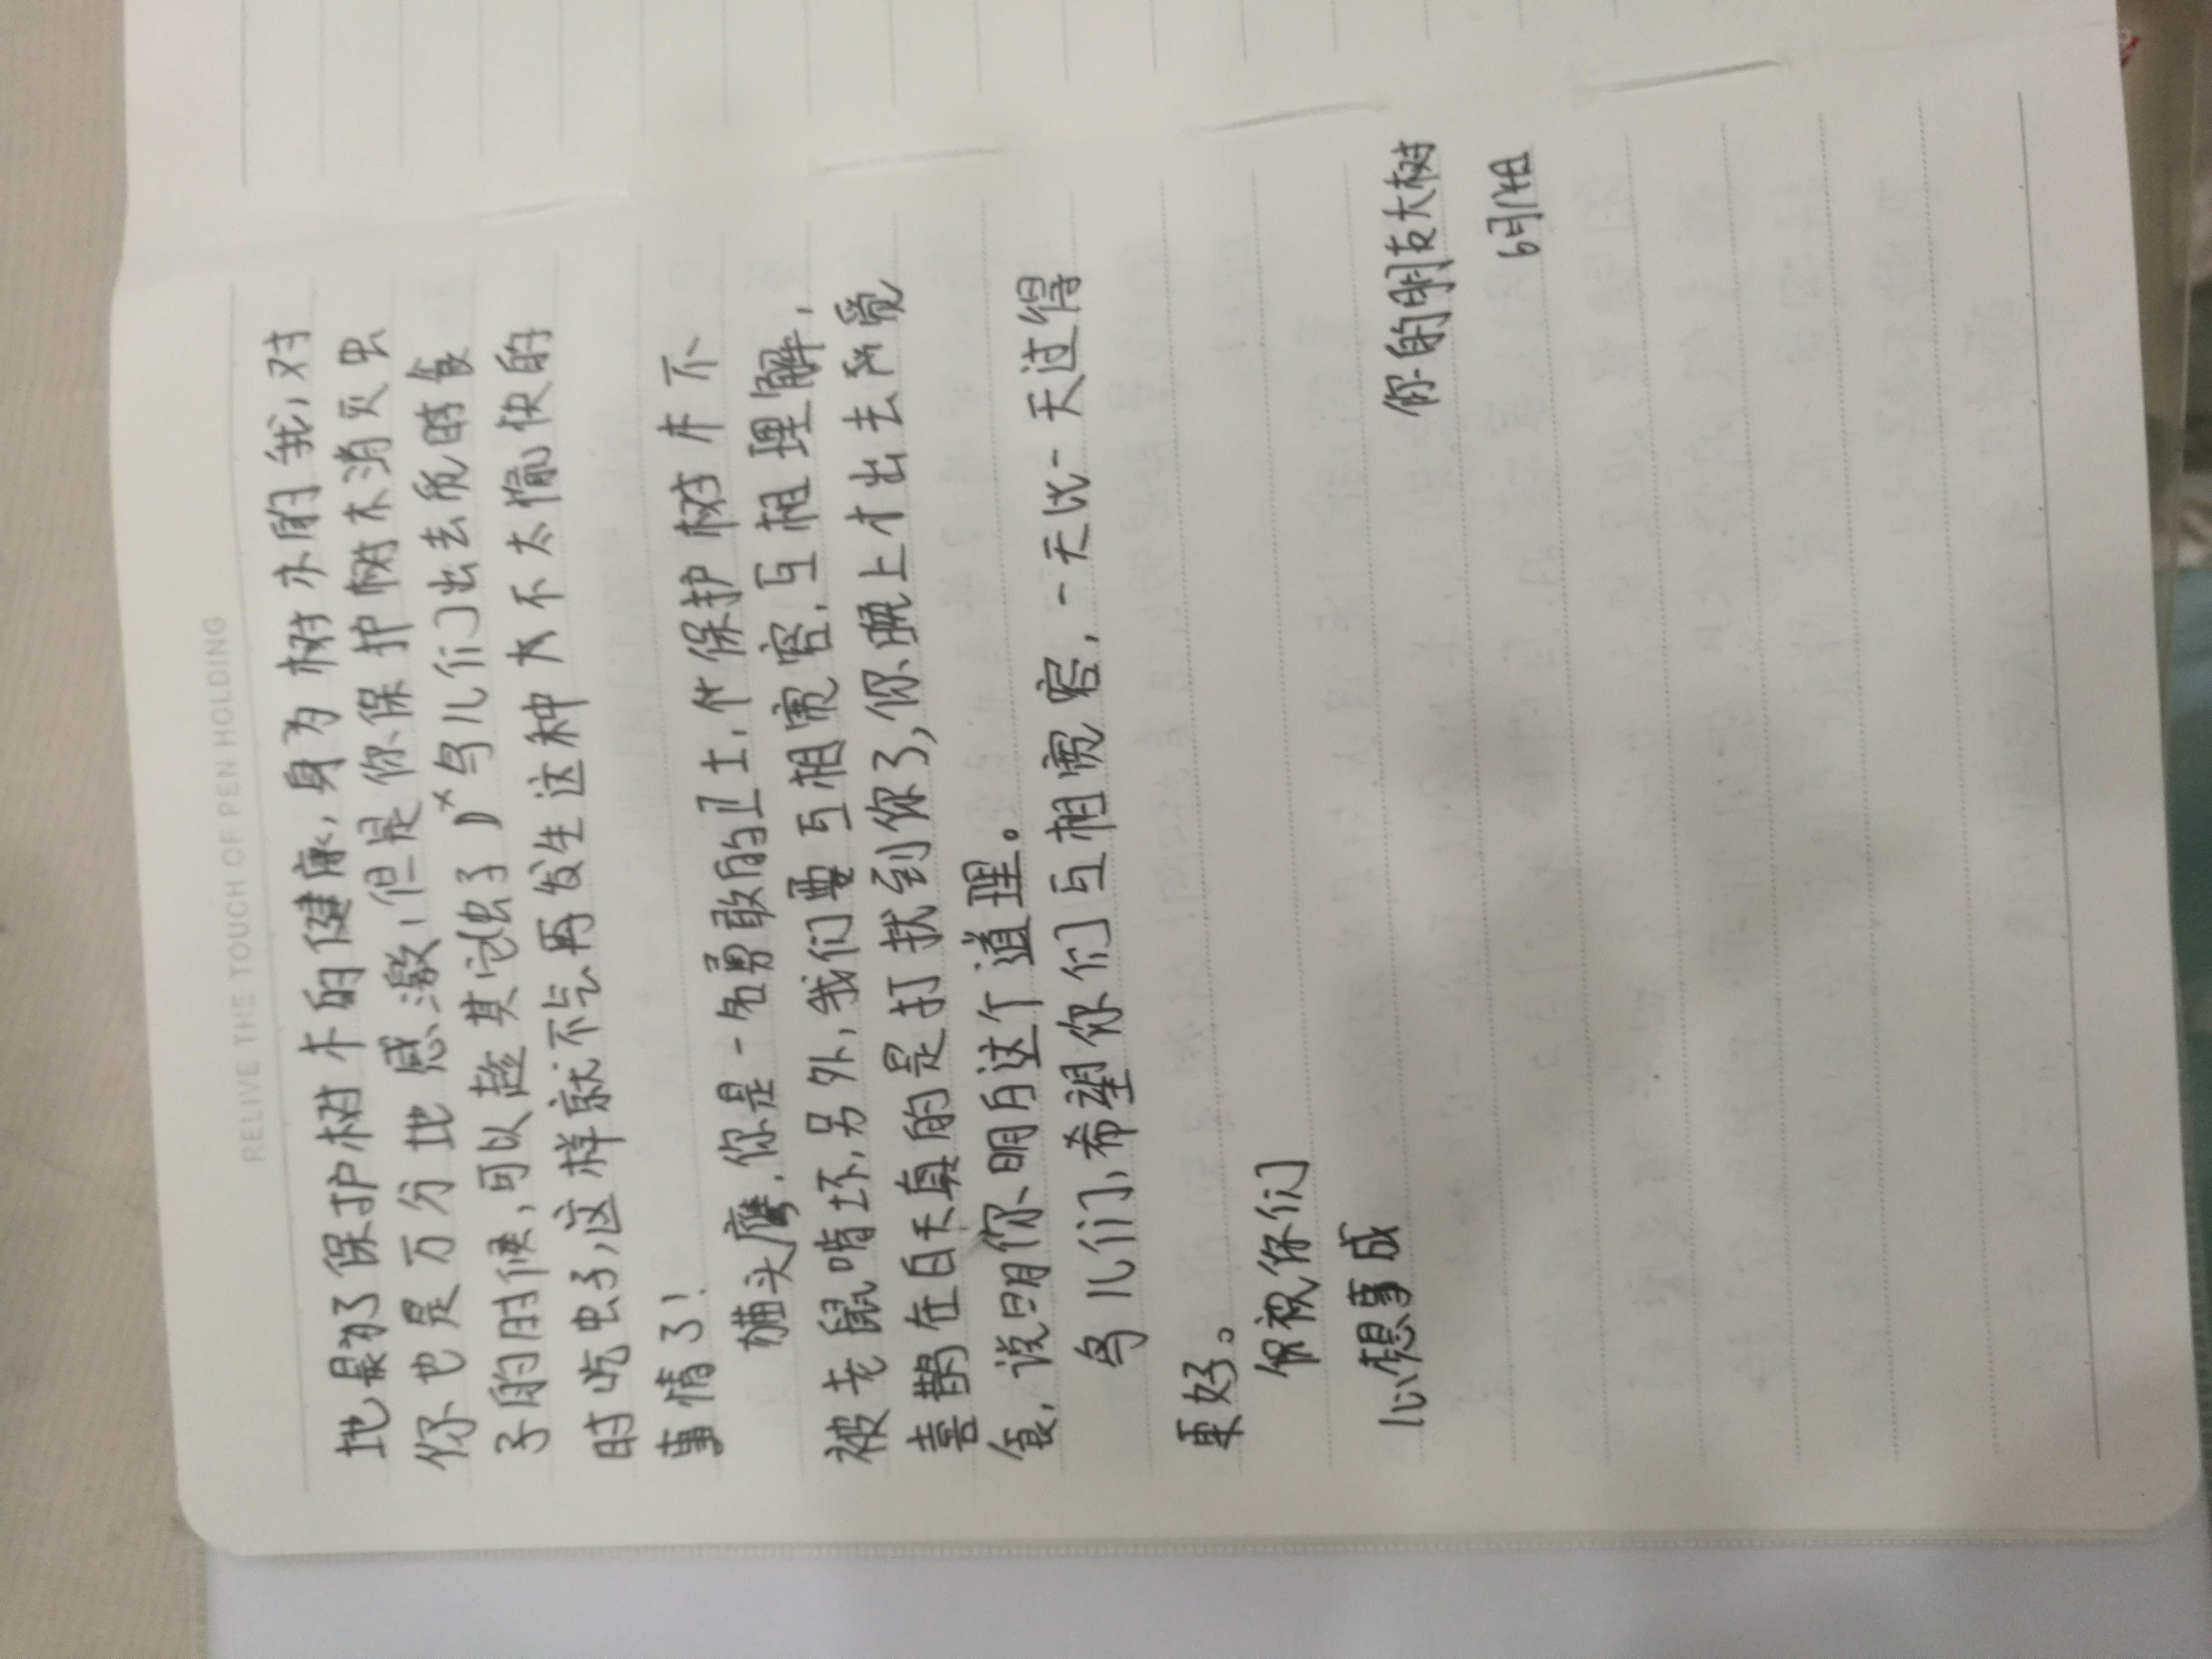 RELIVE THE TOUCH OF PEN HOLDING
地是为了保护树木的健康,身为树木的我,对
你也是万分地感激,但是你保护树木消灭虫
子的时候,可以趁其它虫子鸟儿们出去觅
时吃虫子,这样就不会再发生这种大不太愉快的
事情了!
猫头鹰,你是一名勇敢的卫士,保护树木不
被老鼠啃坏,另外,我们要互相宽容,互相理解,
喜鹊在白天真的是打扰到你了,你晚上才出去觅
食,说明你明白这个道理。
鸟儿们,希望你们互相宽容,一天比一天过得
更好。
祝你们
心想事成
你的朋友大树
6月1日